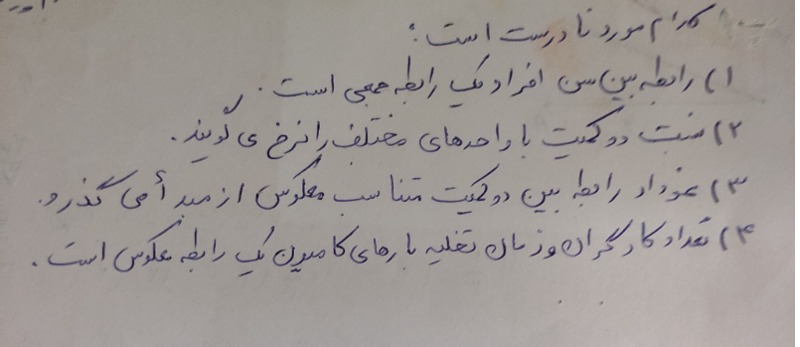 کدام مورد نادرست است:
۱) رابطه بین سن افراد یک رابطه جمعی است.
۲) نسبت دو کمیت با واحدهای مختلف را نرخ می گویند.
۳) نمودار رابطه بین دو کمیت متناسب معکوس از مبدأ می گذرد.
۴) تعداد کارگران و زمان تخلیه بارهای کامیون یک رابطه معکوس است.